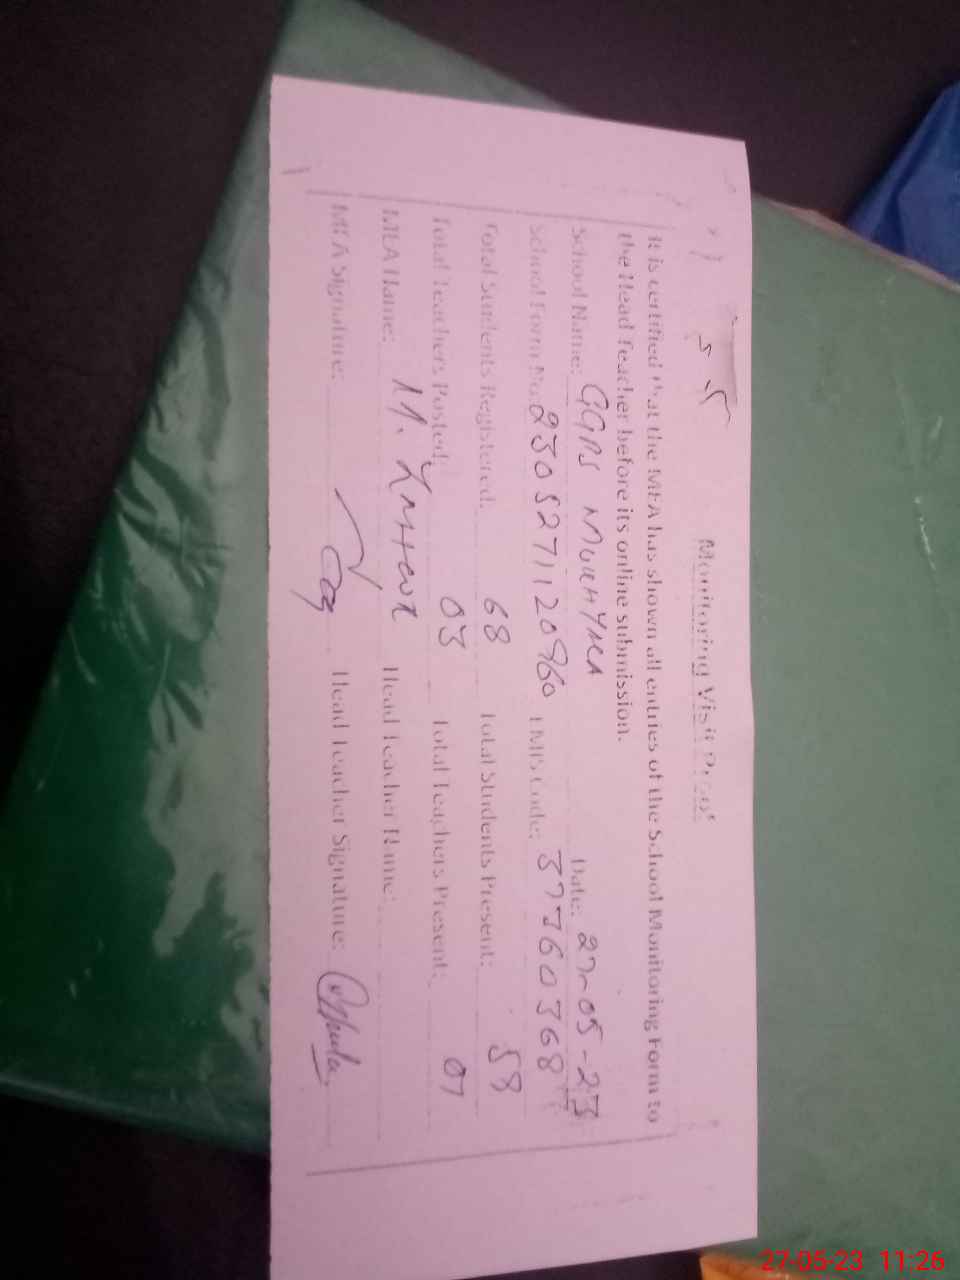 Monitoring Visit Proof
It is certified that the MEA has shown all entries of the School Monitoring Form to
the Head Teacher before its online submission.
School Name: GGPS Date: 27-05-23
School Form No: 2305271120960 EMIS Code: 37360368
Total Students Registered: 68 Total Students Present: 58
Total Teachers Posted: 03 Total Teachers Present: 01
MEA Name: M. Head Teacher Name:
MEA Signature: Head Teacher Signature:
27-05-23 11:26